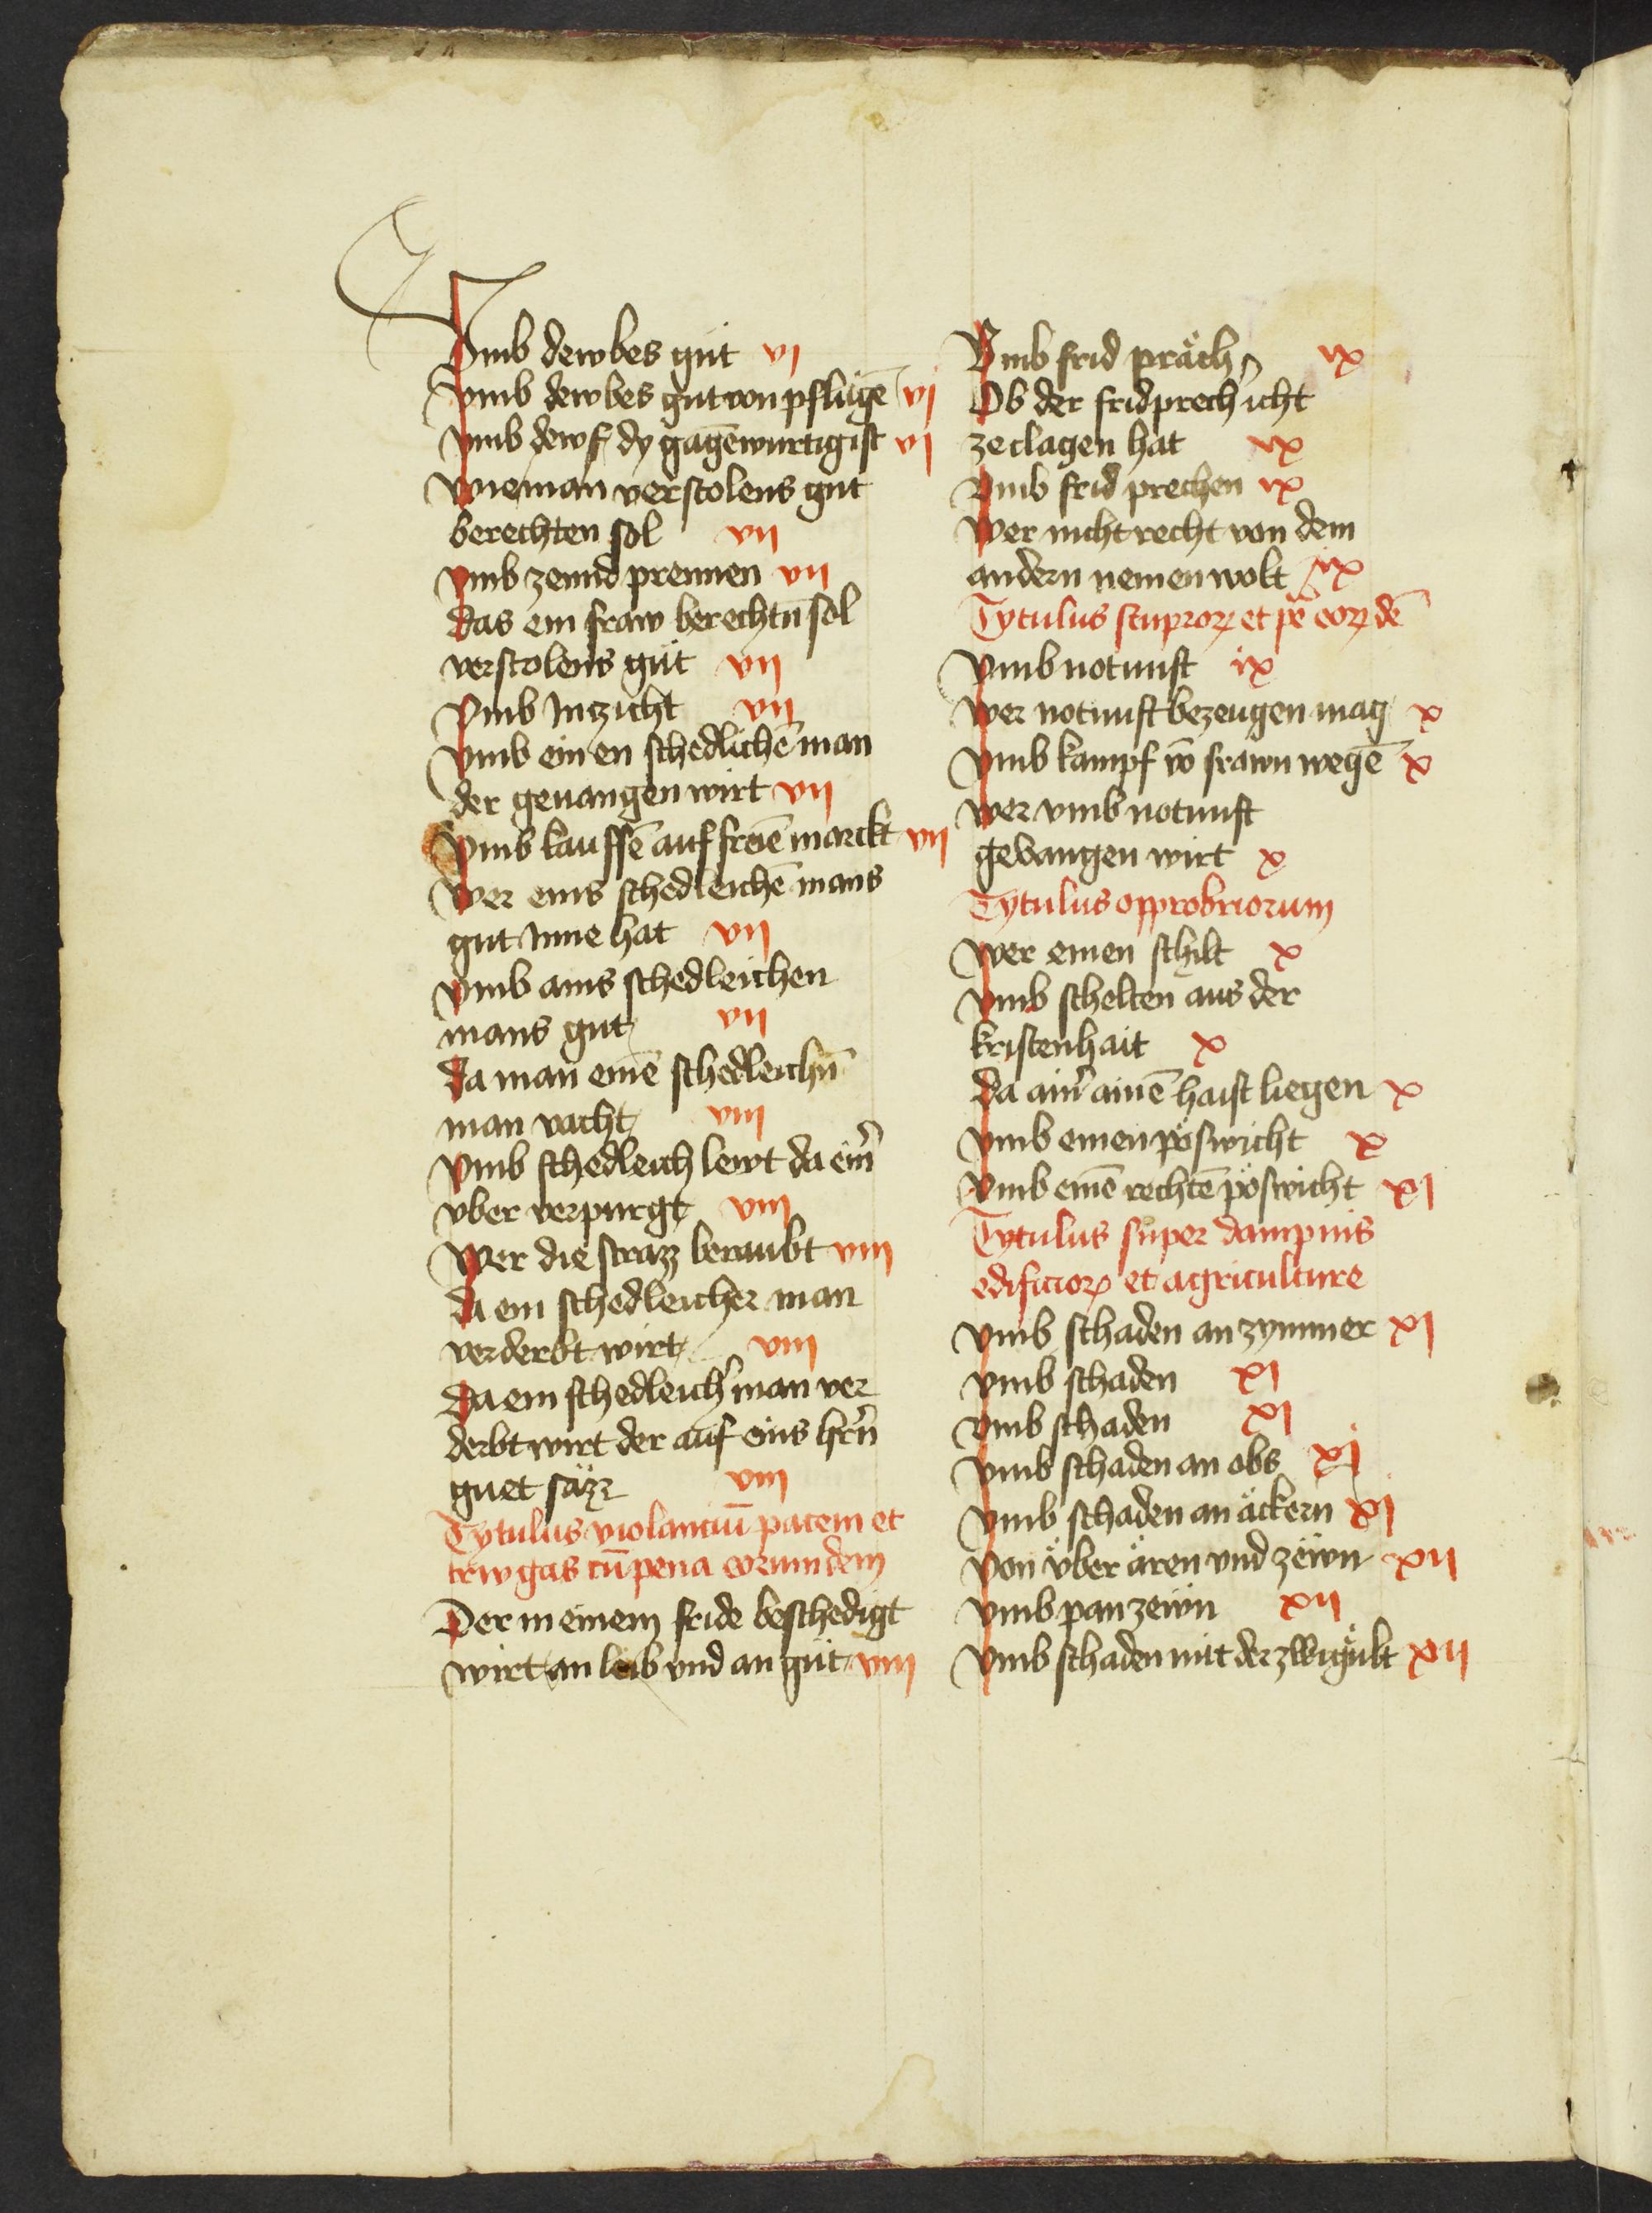 Vmb dewbes gůt vi
Vmb dewbes gůt von pflůgē vi
Vmb dewf dy gagēwurtig ist vi
Wie man verstolens gůt
berechten sol vii
Vmb zennd prennen vii
das ein fraw berechtn̄ sol
verstolens gůt vii
Vmb Inzicht vii
Vmb ein en schedlichē man
der geuangen wirt vii
Vmb kauffē auf freiē marckt vii
Wer eins schedleichē mans
gut Inne hat vii
Vmb ains schedleichen
mans gut vii
Da man einē schedleichn̄
man vacht viii
Vmb schedleich lewt da ein̄
vber verpurgt viii
Wer die strazz beraubt viii
da ein schedleicher man
verderbt wirt viii
Da ein schedleich' man ver
derbt wirt der auf eins hrn̄
guet säzz viii
Tytulus violanciū pacem et
trewgas cū pena eorumdem
Der in einem fride beschedigt
wirt an leib vnd an gůt viii
Vmb frid präch ix
Ob der fridprech' icht
ze clagen hat ix
Vmb frid prechen ix
Wer nicht recht von dem
andern nemen wolt ix
Tytulus stupror et pē eor dē
Vmb notnuft ix
Wer notnuft bezeugen mag x
Vmb kampf vō frawn wegē x
Wer vmb notnuft
gevangen wirt x
Tytulus opprobriorum
Wer einen schilt x
Vmb schelten aus der
kristenhait x
Da ain' ainē haist liegen x
Vmb einen pöswicht x
Vmb einē rechtē pöswicht xi
Tytulus super dampnis
edificior et agriculture
Vmb schaden an zymmer xi
Vmb schaden xi
Vmb schaden xi
Vmb schaden an obs xi
Vmb schaden an äckern xi
Von über ären vnd zewn xii
Vmb panzewn xii
Vmb schaden mit der zwigült xii